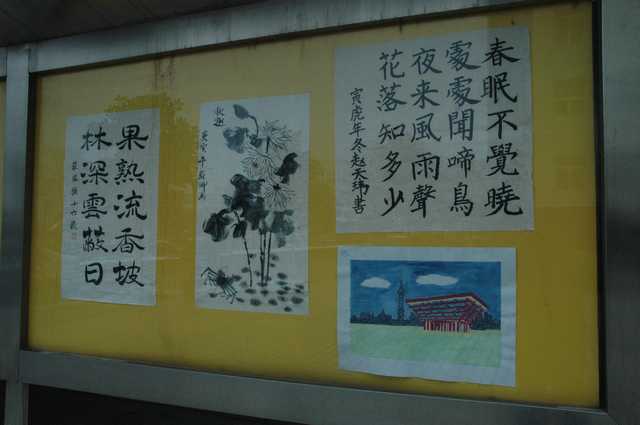 果熟流香坡
林深雲蔽日
春眠不覺曉
處處聞啼鳥
夜來風雨聲
花落知多少
寅虎年冬赵天玮书